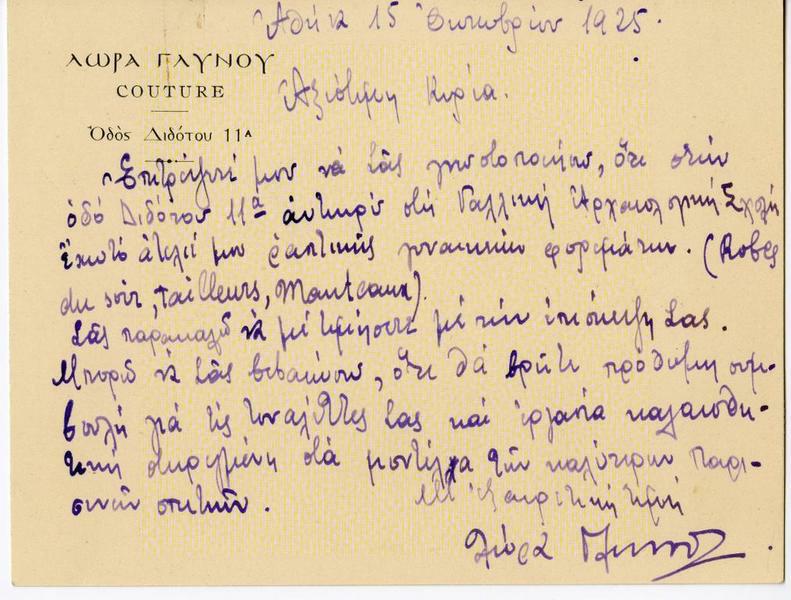 Ἀθήνα 15 Ὀκτωβρίου 1925.
ΛΩΡΑ ΓΛΥΝΟΥ
COUTURE
Ἀξιότιμη Κυρία.
Ὁδὸς Διδότου 11ᴬ
Ἐπιτρέψτέ μου νὰ Σᾶς γνωστοποιήσω, ὅτι στὴν
ὁδὸ Διδότου 11ᵃ ἀντικρὺ στὴ Γαλλικὴ Ἀρχαιολογικὴ Σχολὴ
ἔχω τὸ ἀτελιέ μου ραπτικῆς γυναικείων φορεμάτων. (Robes
du soir, Tailleurs, Manteaux).
Σᾶς παρακαλῶ νὰ μὲ τιμήσετε μὲ τὴν ἐπίσκεψή Σας.
Μπορῶ νὰ Σᾶς βεβαιώσω, ὅτι θὰ βρῆτε πρόθυμη συμ-
βουλὴ γιὰ τὶς τουαλέττες Σας καὶ ἐργασία καλαισθη-
τικὴ στηριγμένη στὰ μοντέλλα τῶν καλύτερων παρι-
σινῶν σπιτιῶν.
Μ' ἐξαιρετικὴ τιμὴ
Λώρα Γληνοῦ